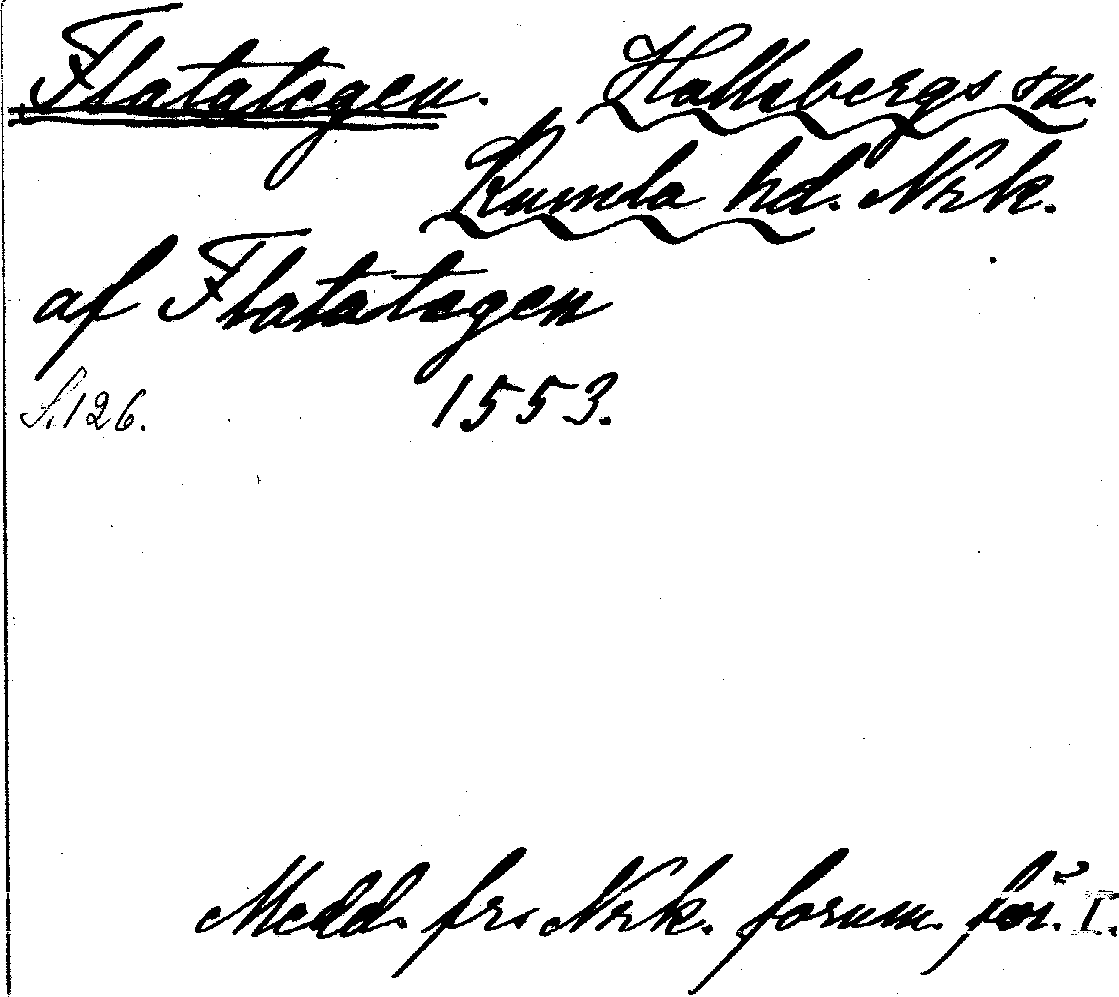 Flatategen. Hallsbergs sn.
Kumla hd. Nrk.
af Flatategen
S. 126. 1553.
Medd. fr. Nrk. fornm. för. I.